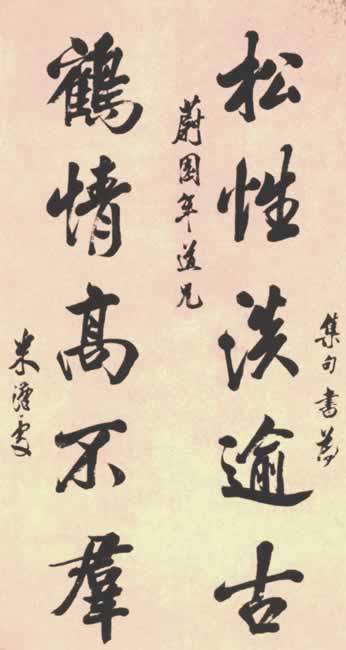 集句書為
松性淡逾古
蔚園年道兄
鶴情高不羣
米漢雯